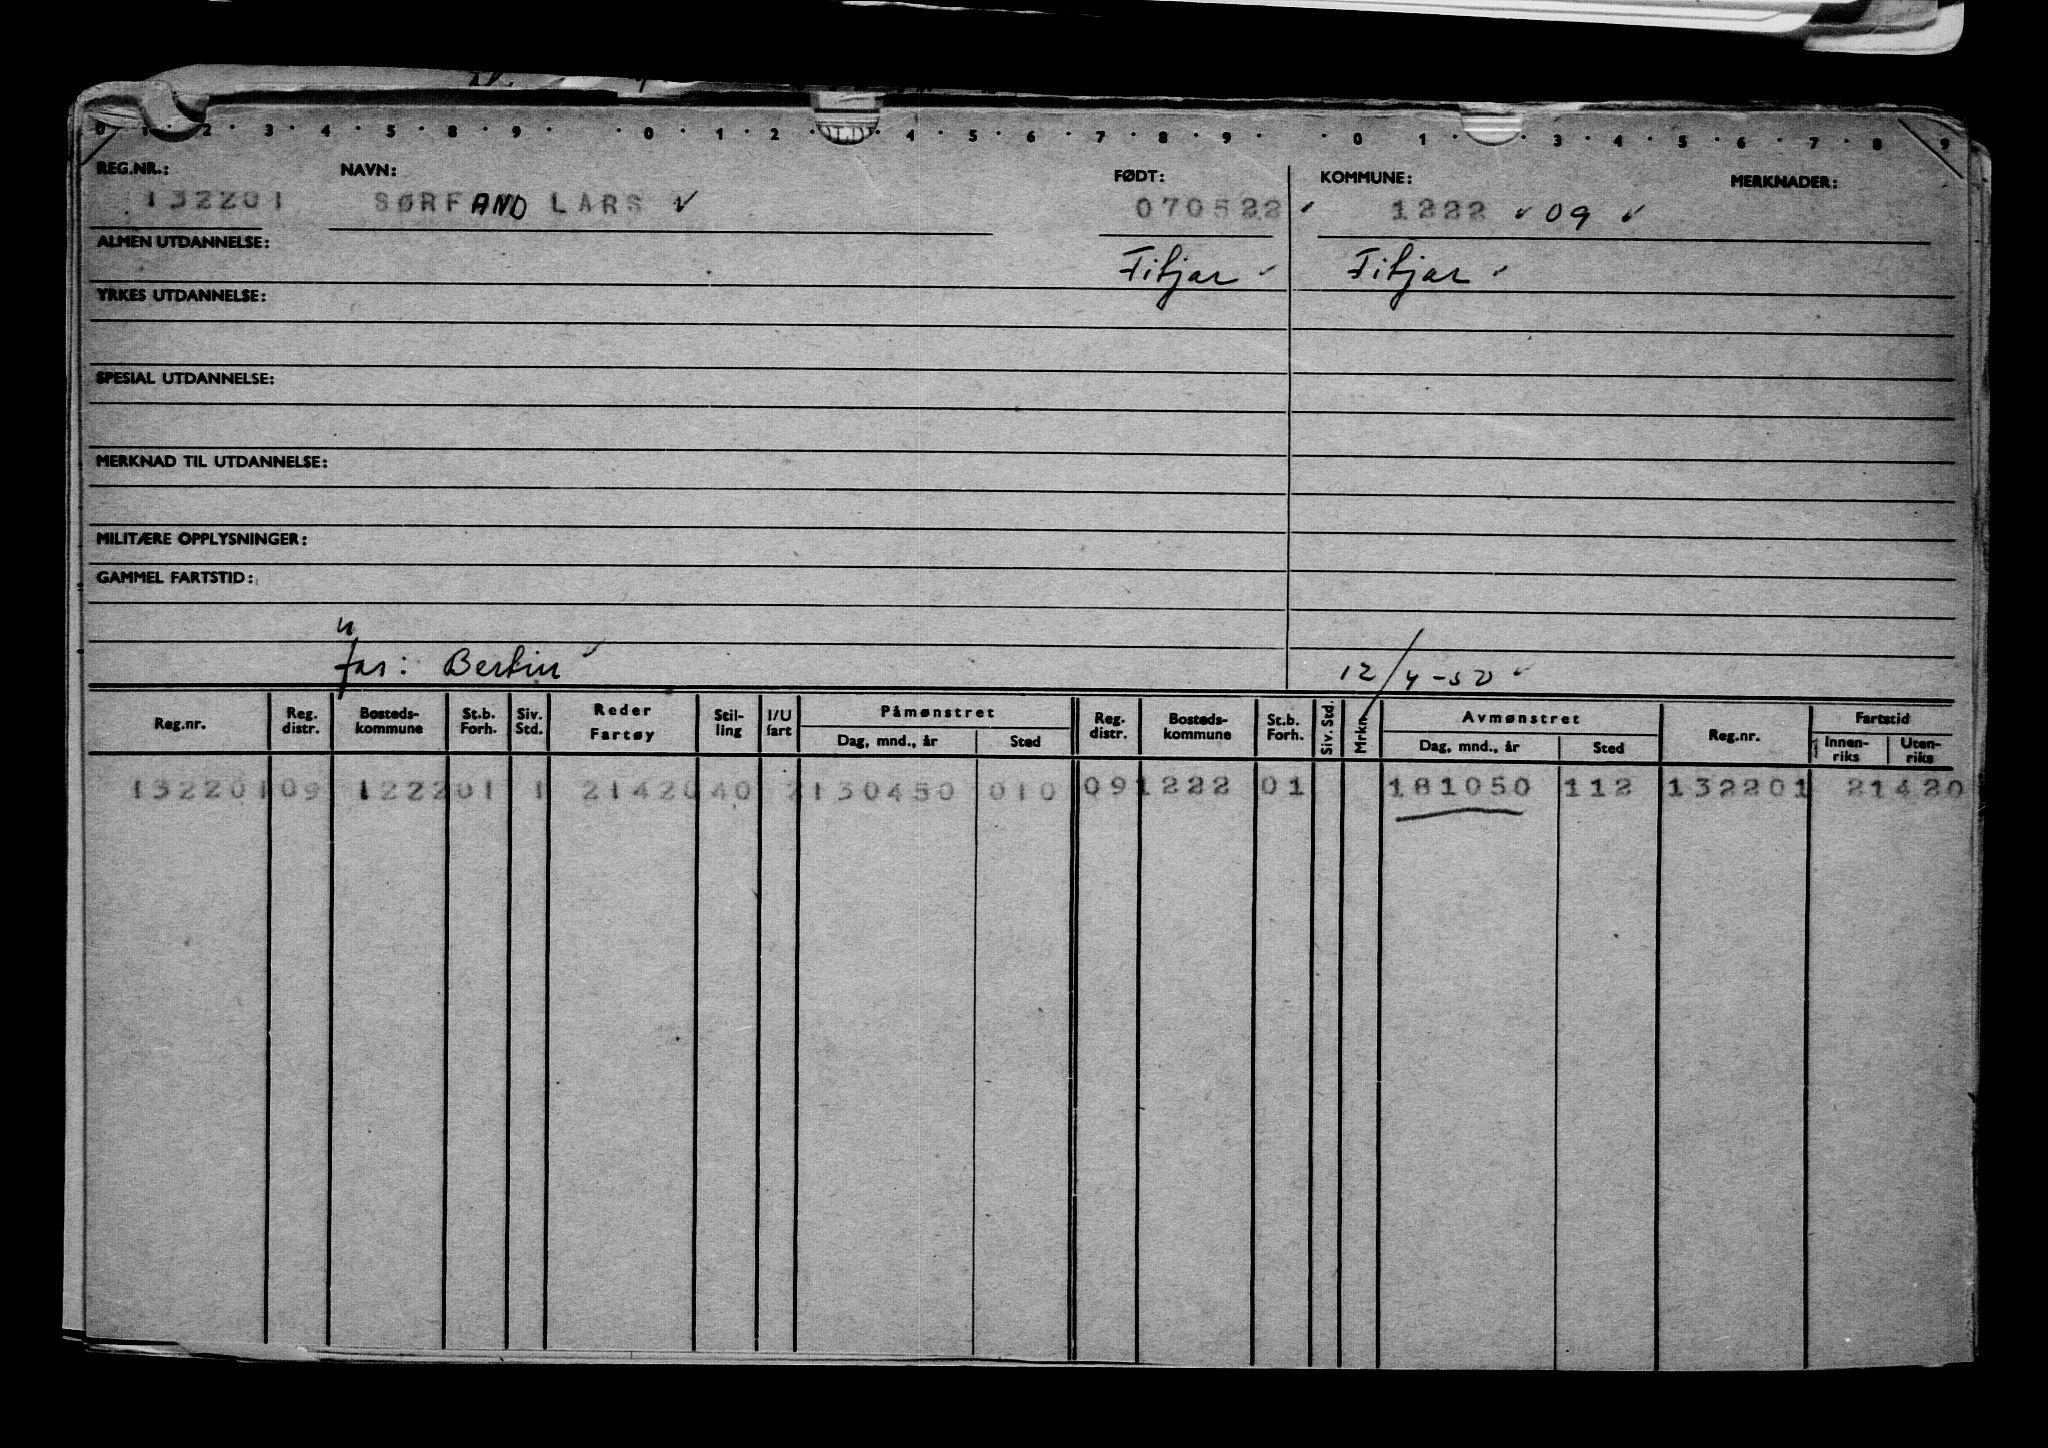 0 1 · 2 · 3 · 4 · 5 · 8 · 9 · · 0 · 1 · 2 · 4 · 5 · 6 · 7 · 8 · 9 · · 0 · 1 · · 3 · 4 · 5 · 6 · 7 · 8 · 9
REG.NR.: NAVN: FØDT: KOMMUNE: MERKNADER:
132201 SØRFAND LARS ✓ 070522 1222 ✓ 09 ✓
ALMEN UTDANNELSE:
Fitjar Fitjar
YRKES UTDANNELSE:
SPESIAL UTDANNELSE:
MERKNAD TIL UTDANNELSE:
MILITÆRE OPPLYSNINGER:
GAMMEL FARTSTID:
far: Bertin 12/4-50
Reg.nr. Reg. distr. Bosteds-kommune St.b. Forh. Siv. Std. Reder Fartøy Stil-ling I/U fart Påmønstret Dag, mnd., år Sted Reg. distr. Bosteds-kommune St.b. Forh. Siv. Std. Mrkn. Avmønstret Dag, mnd., år Sted Reg.nr. Fartstid Innen-riks Uten-riks
132201 09 1222 01 1 21420 40 2 130450 010 09 1222 01 181050 112 132201 21420